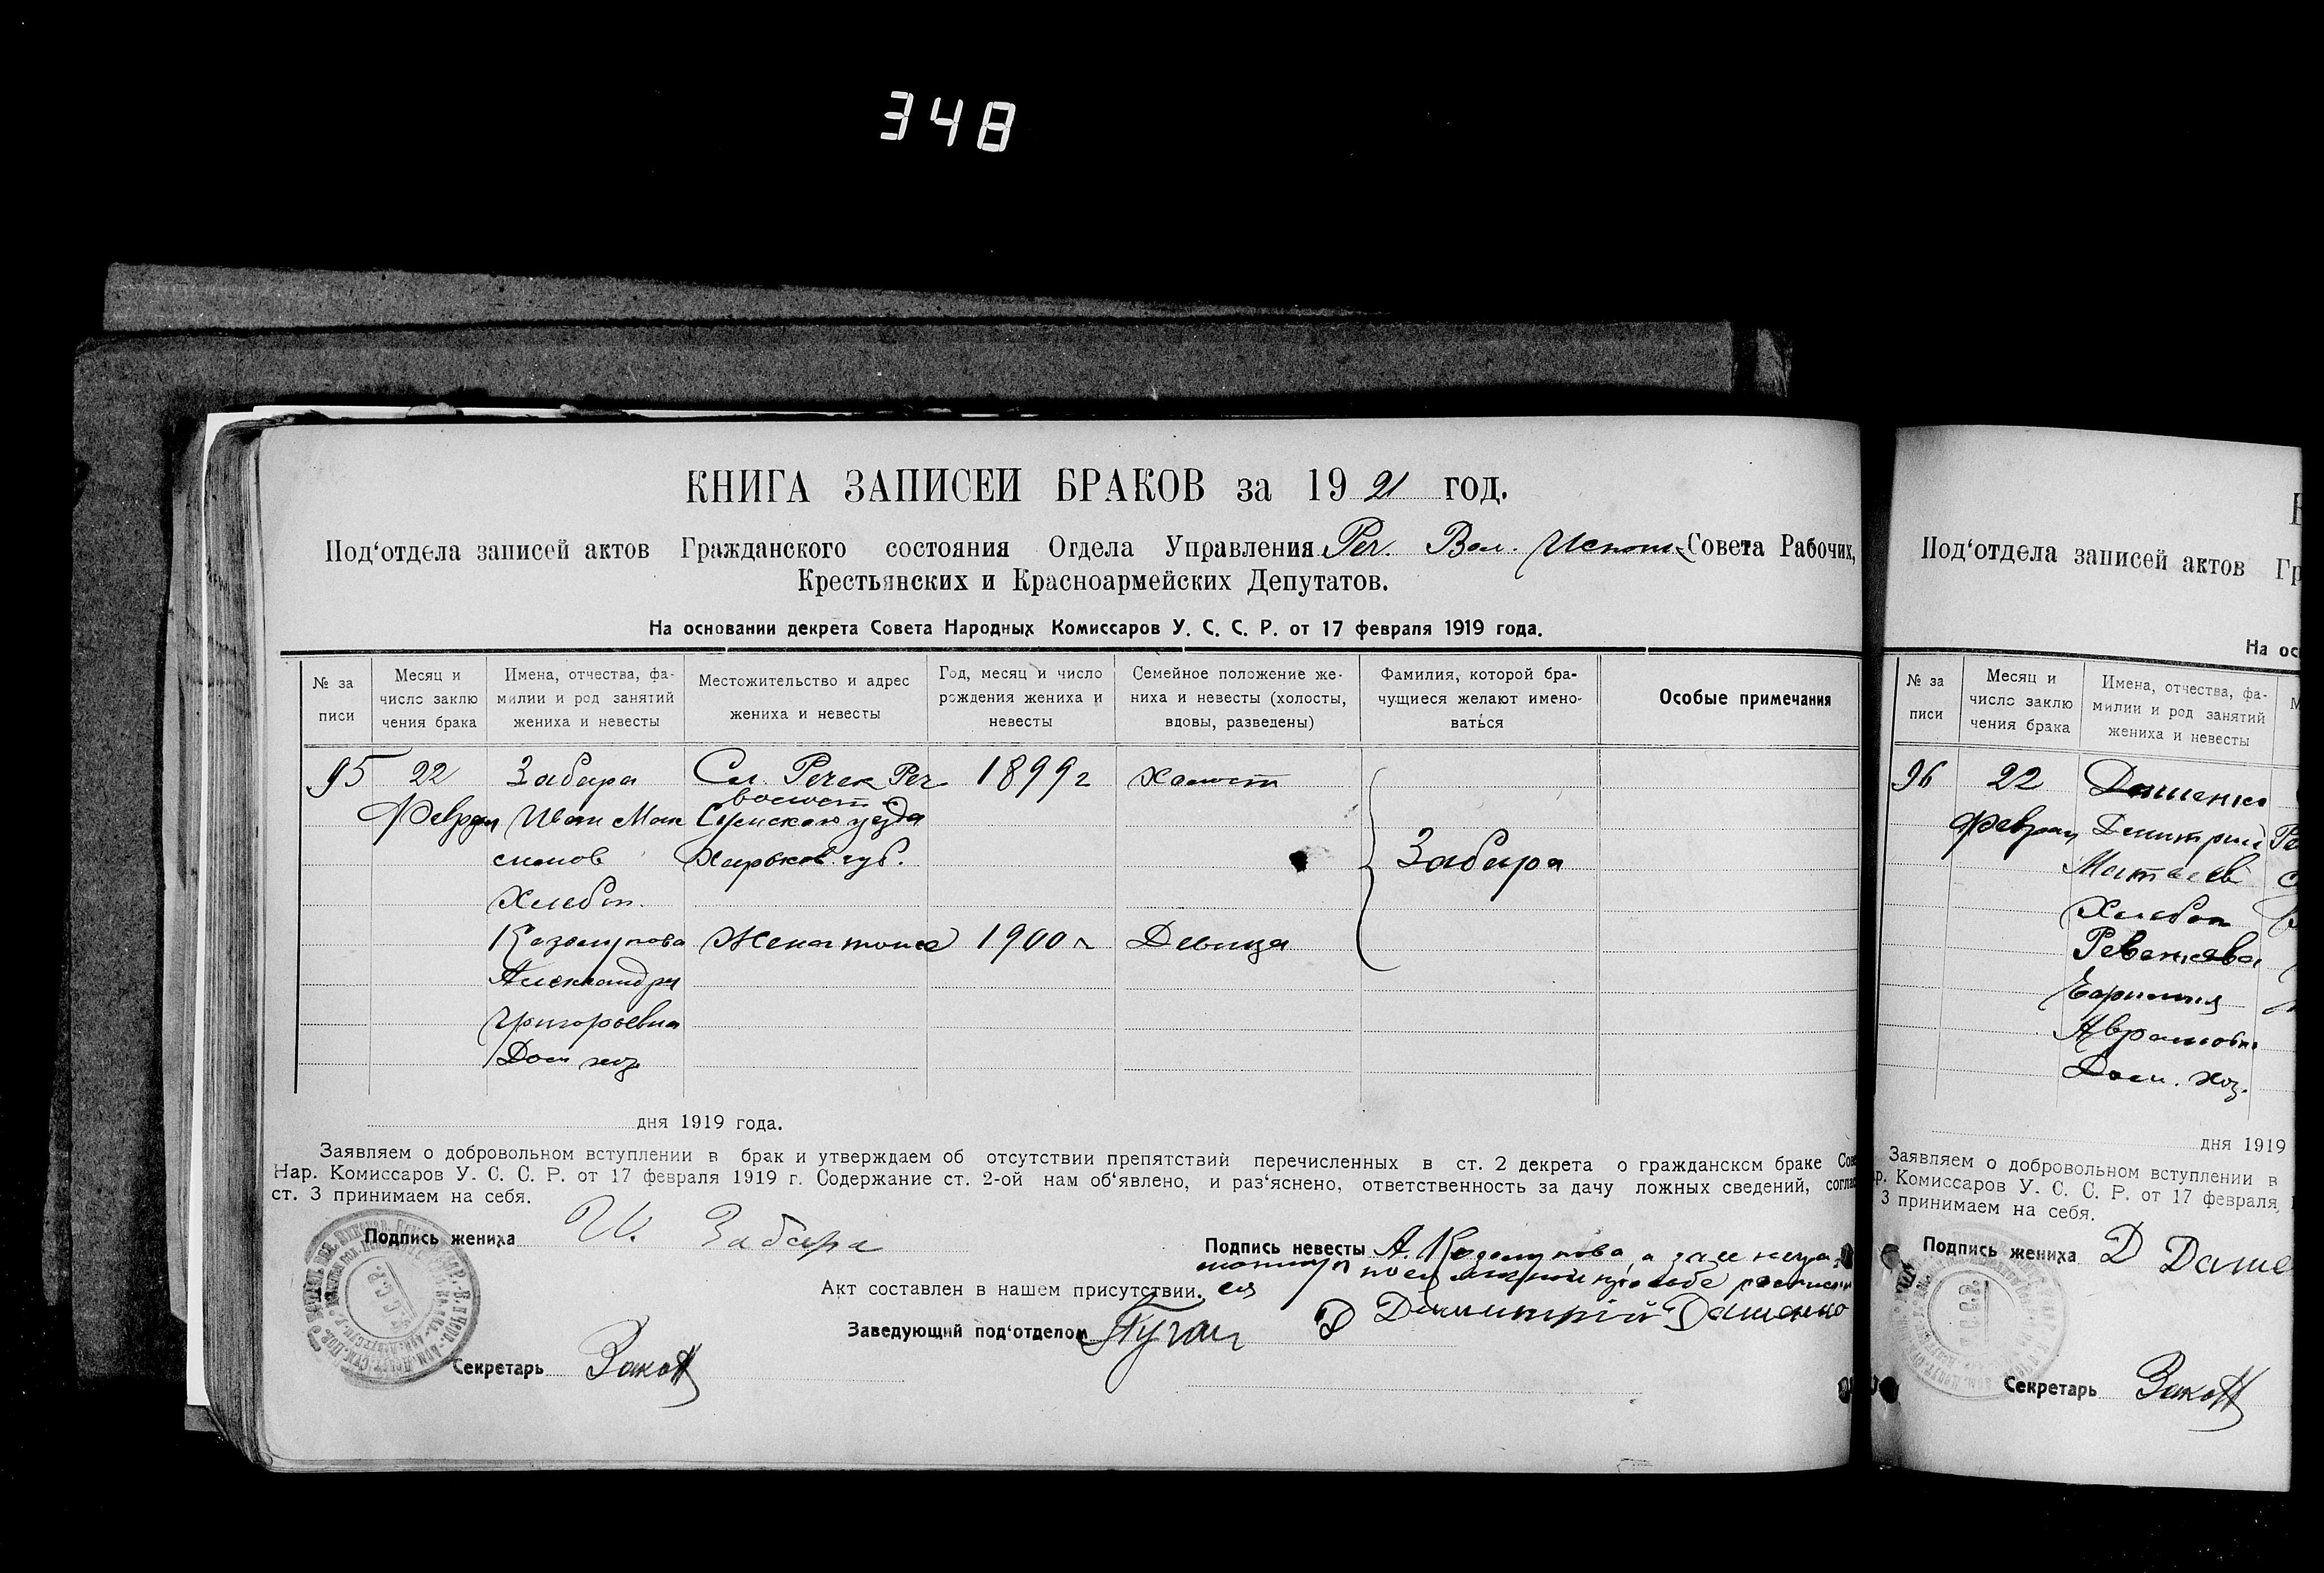 348
КНИГА ЗАПИСЕЙ БРАКОВ за 1921 год.
Под‘отдела записей актов Гражданского состояния Отдела Управления Реч. Вол. Исполк. Совета Рабочих,
Крестьянских и Красноармейских Депутатов.
На основании декрета Совета Народных Комиссаров У. С. С. Р. от 17 февраля 1919 года.
№ за
писи
Месяц и
число заклю
чения брака
Имена, отчества, фа-
милии и род занятий
жениха и невесты
Местожительство и адрес
жениха и невесты
Год, месяц и число
рождения жениха и
невесты
Семейное положение же-
ниха и невесты (холосты,
вдовы, разведены)
Фамилия, которой бра-
чущиеся желают имено-
ваться
Особые примечания
95
22
Февраля
Забара
Иван Мак
симов
Хлебоп.
Сл. Речек Реч
волост.
Сумского уезда
Харьков. губ.
1899 г
Холост
Забара
Козолупова
Александра
Григорьевна
Дом хоз.
1900 г
Девица
дня 1919 года.
Заявляем о добровольном вступлении в брак и утверждаем об отсутствии препятствий перечисленных в ст. 2 декрета о гражданском браке Сове
Нар. Комиссаров У. С. С. Р. от 17 февраля 1919 г. Содержание ст. 2-ой нам об‘явлено, и раз‘яснено, ответственность за дачу ложных сведений, соглас
ст. 3 принимаем на себя.
Подпись жениха И. Забара
Подпись невесты А. Козолупова, а за ее негра
мотную по ее личной просьбе росписал
ся Д Димитрій Дашенко
Акт составлен в нашем присутствии.
Заведующий под‘отделом
Секретарь
Под‘отдела записей актов Гр
На ос
№ за
писи
Месяц и
число заклю
чения брака
Имена, отчества, фа-
милии и род занятий
жениха и невесты
96
22
Февраля
Дашенко
Димитрий
Матвеев
Хлебоп
Аврамовна
Дом. хоз.
дня 1919
Заявляем о добровольном вступлении в
р. Комиссаров У. С. С. Р. от 17 февраля,
3 принимаем на себя.
Подпись жениха Д Даше
Секретарь